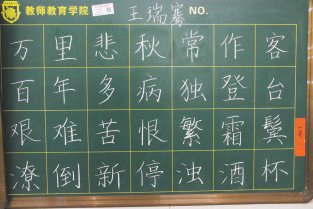 教师教育学院 王瑞骞 NO.
万里悲秋常作客
百年多病独登台
艰难苦恨繁霜鬓
潦倒新停浊酒杯